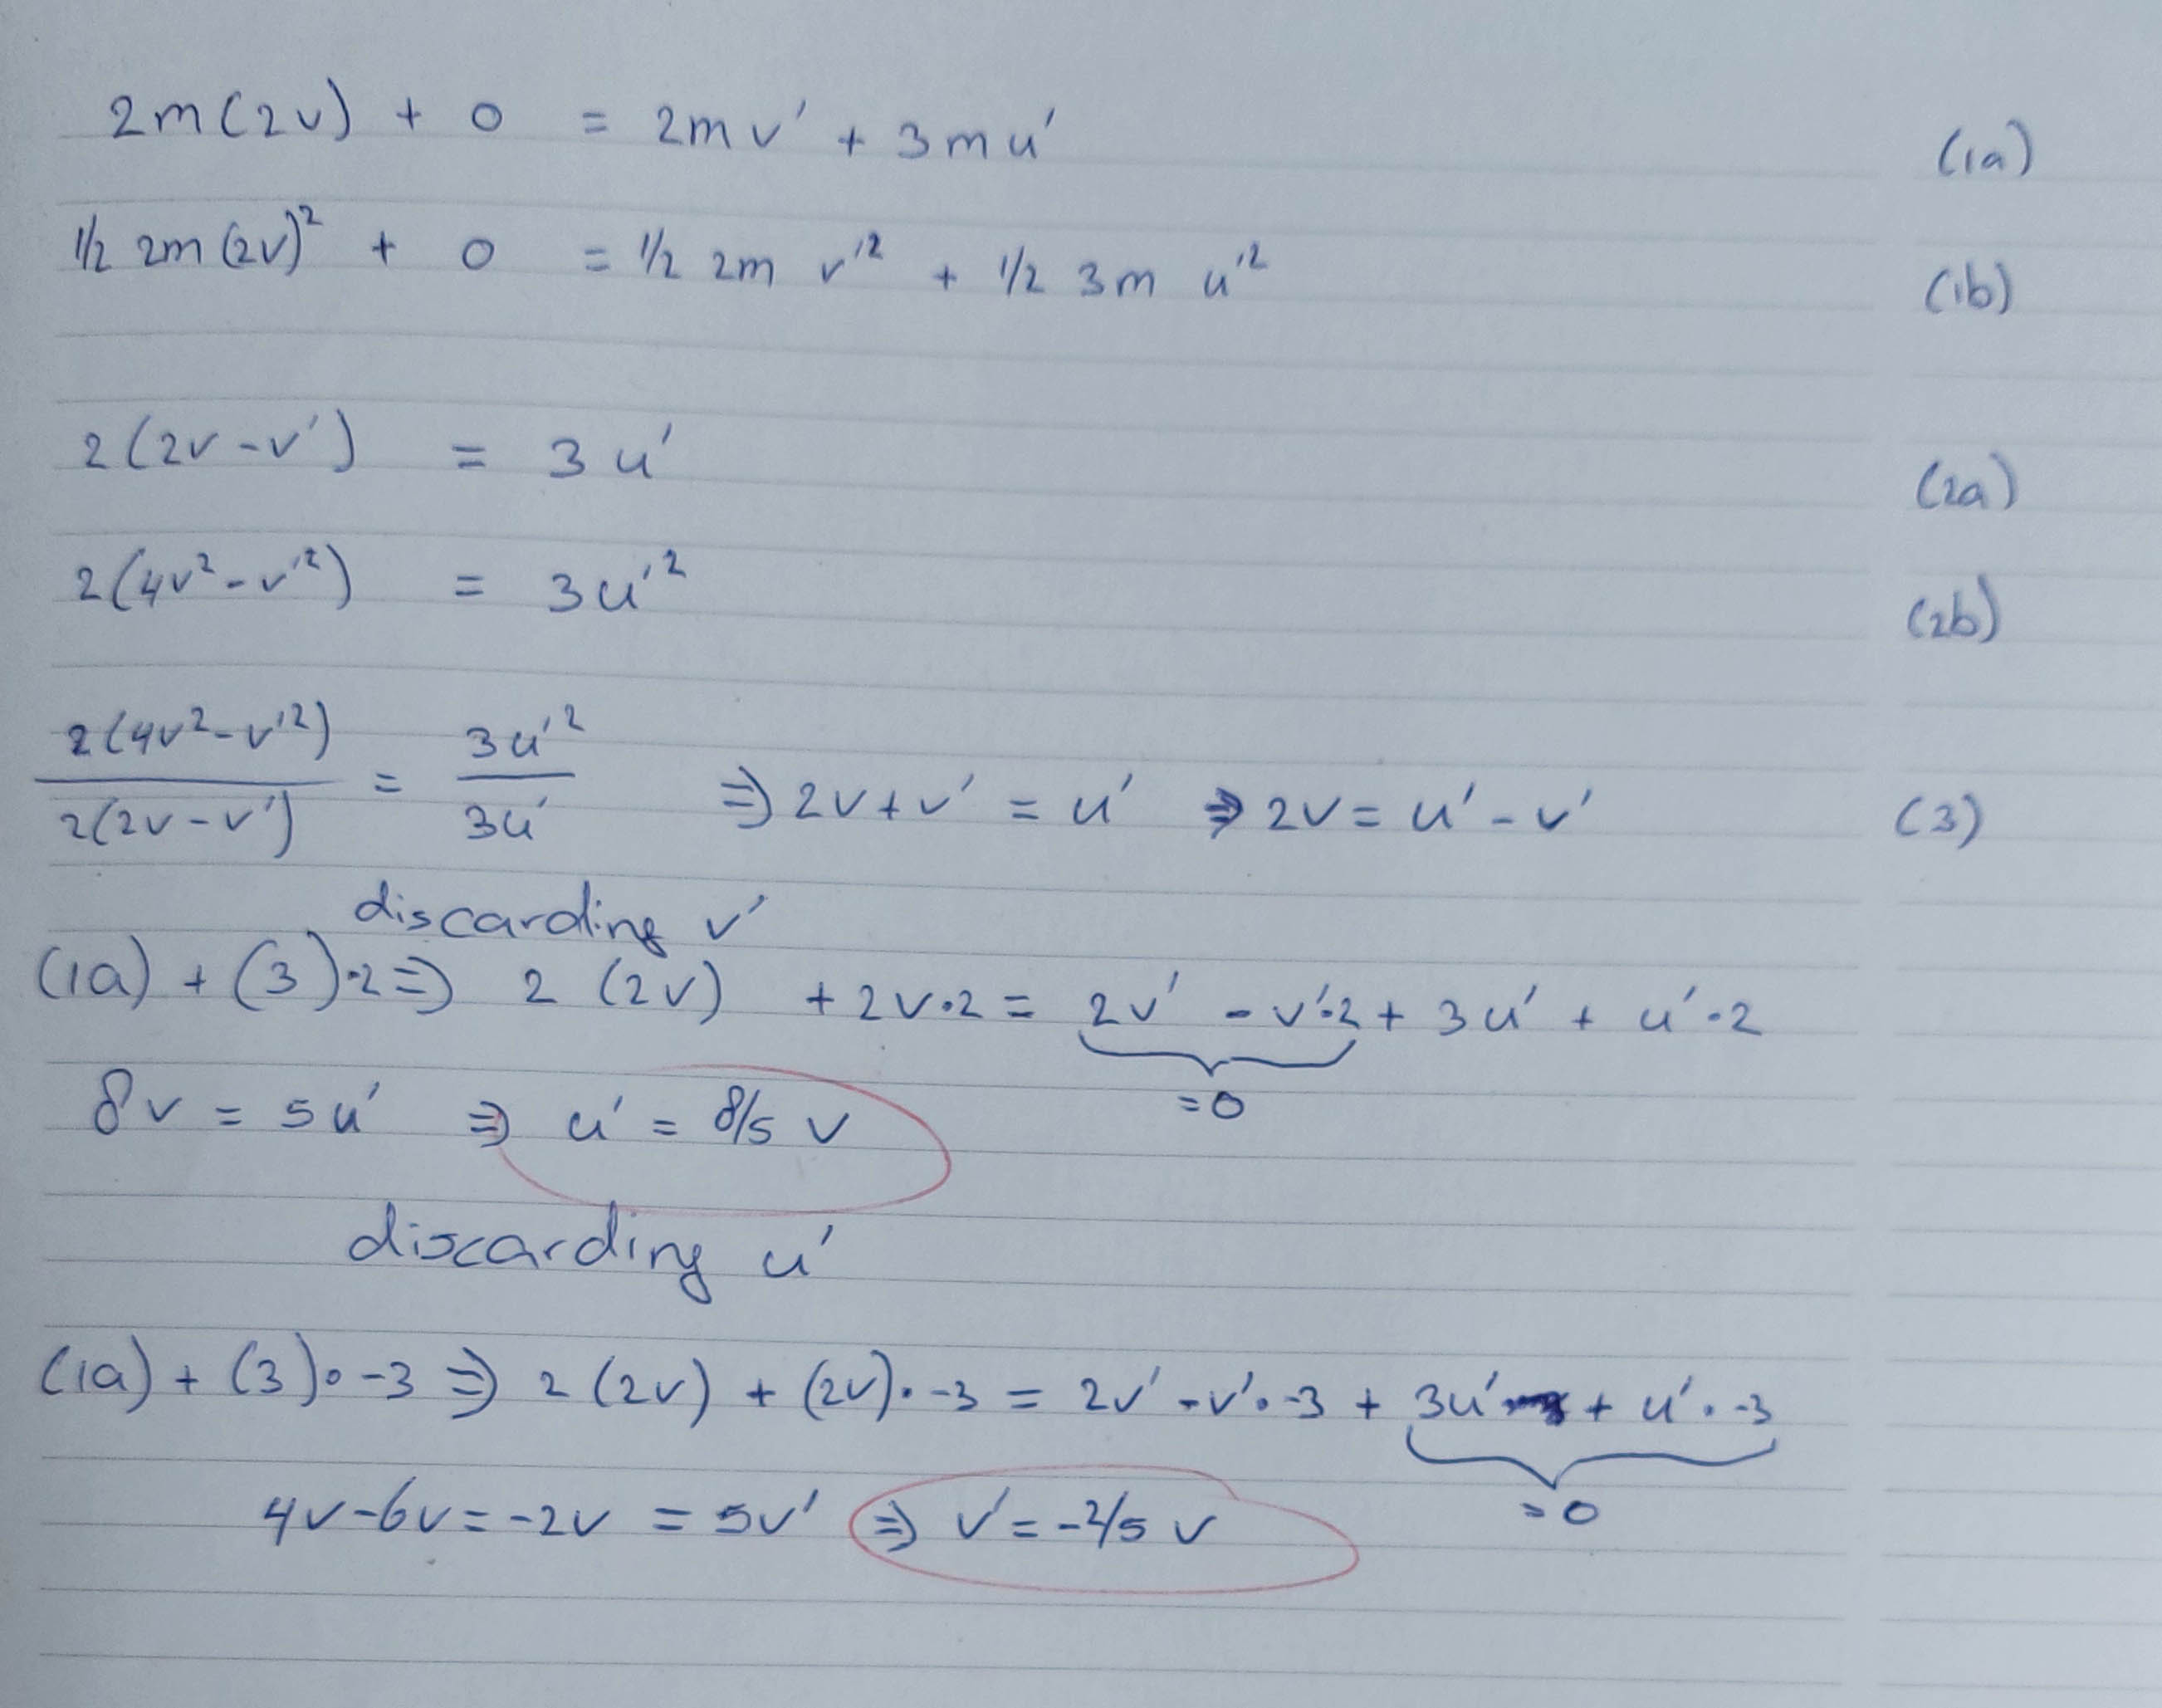 2m(2v) + 0 = 2mv' + 3mu' (1a)
1/2 2m(2v)² + 0 = 1/2 2m v'² + 1/2 3m u'² (1b)
2(2v-v') = 3u' (2a)
2(4v²-v'²) = 3u'² (2b)
2(4v²-v'²) / 2(2v-v') = 3u'² / 3u' ⇒ 2v+v' = u' ⇒ 2v = u'-v' (3)
discarding v'
(1a) + (3)·2 ⇒ 2(2v) + 2v·2 = 2v' - v'·2 + 3u' + u'·2
=0
8v = 5u' ⇒ u' = 8/5 v
discarding u'
(1a) + (3)·-3 ⇒ 2(2v) + (2v)·-3 = 2v' - v'·-3 + 3u' + u'·-3
=0
4v-6v = -2v = 5v' ⇒ v' = -2/5 v